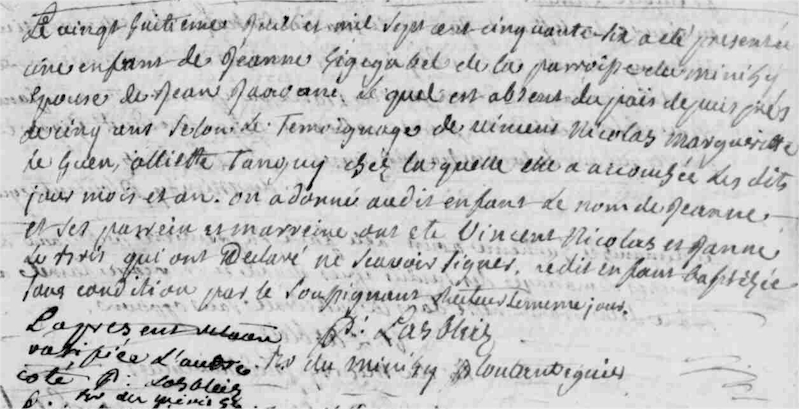 Le vingt huitieme Juillet mil sept cent cinquante six a eté presentée
une enfant de Jeanne Gigegabel de la parroisse du minihy
Epouse de Jean le quel est absent du païs depuis près
de cinq ans selon le Temoignage de vincent Nicolas Margueritte
le Guen, alliette Tanguy chez la quelle elle a accouchée les dits
jour mois et an. on a donné audit enfant le nom de Jeanne
et ses parrein et marreine ont eté Vincent Nicolas et Janne
Le qui ont Declaré ne scavoir signer, ledit enfant baptisée
sous condition par le Soussignant Recteur lememe jour.
P: Lasbleiz
Lapresent
de l'autre Rr du minihy Ploulantreguier
coté P: Lasbleiz
Rr du minihy